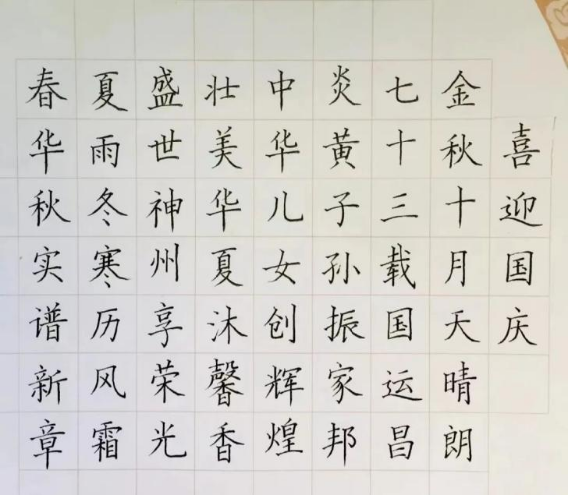 喜迎国庆
金秋十月天晴朗
七十三载国运昌
炎黄子孙振家邦
中华儿女创辉煌
壮美华夏沐馨香
盛世神州享荣光
夏雨冬寒历风霜
春华秋实谱新章